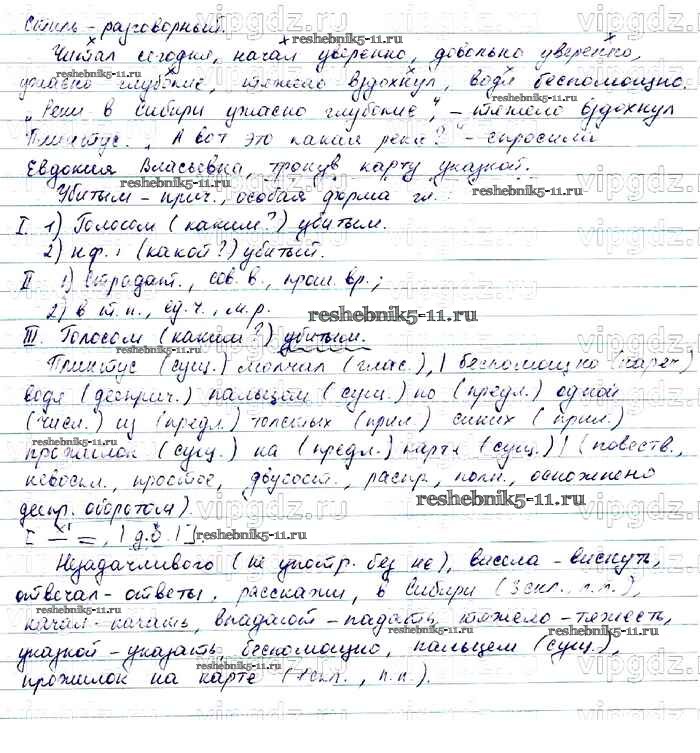 Стиль - разговорный.
Читал сегодня, начал уверенно, довольно уверенно,
ужасно глубокие, тяжело вздохнул, водя беспомощно.
„Реки в Сибири ужасно глубокие", - тяжело вздохнул
Плинтус. „А вот это какая река?" - спросила
Евдокия Власьевна, тронув карту указкой.
Убитым - прич., особая форма гл.
I. 1) Голосом (каким?) убитым.
2) н.ф.: (какой?) убитый.
II 1) Страдат., сов. в., прош. вр.;
2) в т.п., ед.ч., м.р.
III. Голосом (каким?) убитым.
Плинтус (сущ.) молчал (глас.), | беспомощно (нареч.)
водя (дееприч.) пальцем (сущ.) по (предл.) одной
(числ.) из (предл.) толстых (прил.) синих (прил.)
прожилок (сущ.) на (предл.) карте (сущ.) | (повеств.,
невоскл., простое, двусост., распр., полн., осложнено
деепр. оборотом).
Незадачливого (не употр. без не), висела - виснуть,
отвечал - ответы, расскажи, в Сибири (3 скл., п.п.),
качал - качать, впадают - падать, тяжело - тяжесть,
указкой - указать, беспомощно, пальцем (сущ.),
прожилок на карте (1 скл., п.п.).
reshebnik5-11.ru
vipgdz.ru